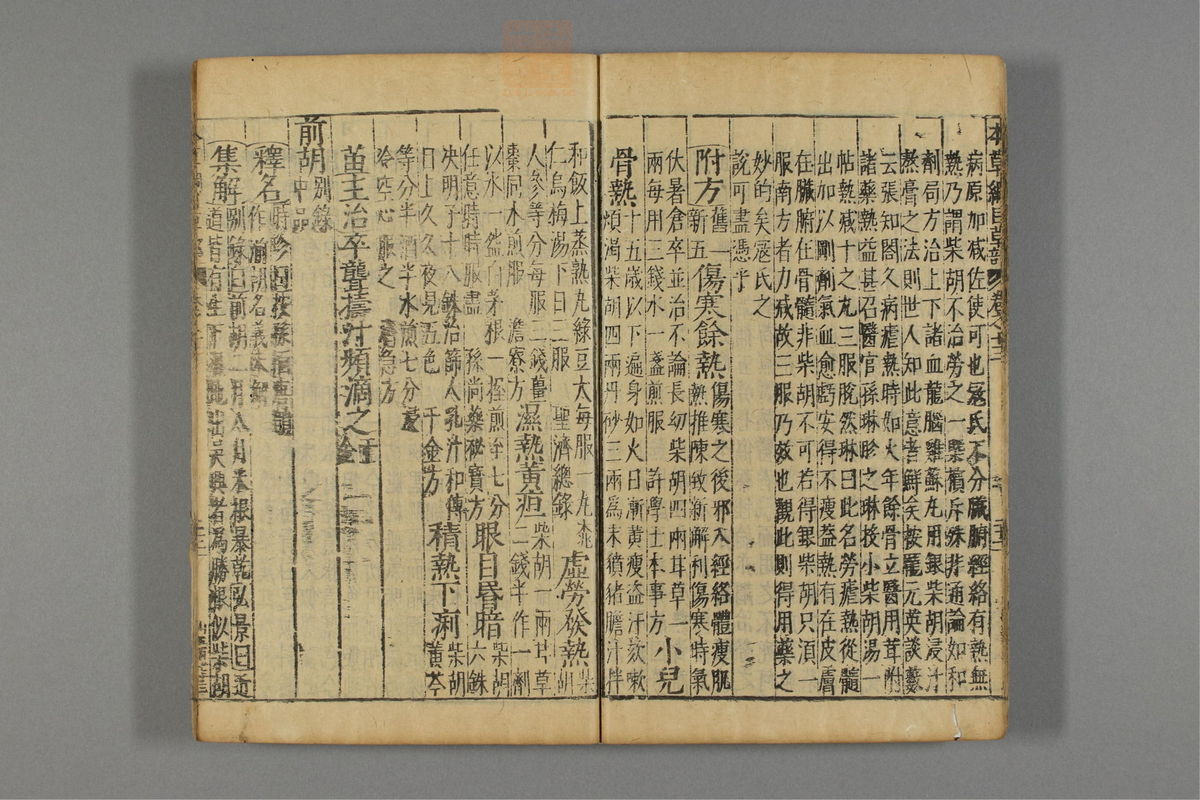 本草綱目草部
病原加減佐使可也寇氏不分臟腑經絡有熱無
熱乃謂柴胡不治勞之一槩擯斥殊非通論如和
劑局方治上下諸血龍腦雞蘇丸用銀柴胡浸汁
熬膏之法則世人知此意者鮮矣按龐元英談藪
云張知閤久病瘧熱時如火年餘骨立醫用茸附
諸藥熱益甚召醫官孫琳胗之琳投小柴胡湯一
帖熱減十之九三服脫然琳曰此名勞瘧熱從髓
出加以剛劑氣血愈虧安得不瘦蓋熱有在皮膚
在臟腑在骨髓非柴胡不可若得銀柴胡只須一
服南方者力減故三服乃效也觀此則得用藥之
妙的矣寇氏之
說可盡憑乎
附方舊一新五傷寒餘熱傷寒之後邪入經絡體瘦肌
熱推陳致新解利傷寒時氣
伏暑倉卒並治不論長幼柴胡四兩甘草一
兩每用三錢水一盞煎服 許學士本事方 小兒
骨熱十五歲以下遍身如火日漸黃瘦盜汗欬嗽
煩渴柴胡四兩丹砂三兩爲末獖猪膽汁拌
和飯上蒸熟丸綠豆大每服一丸
仁烏梅湯下日三服 聖濟總錄 虛勞發熱柴胡
人參等分每服三錢薑
棗同水煎服 澹寮方 濕熱黃疸柴胡一兩甘草
二錢半作一劑
以水一盌白茅根一握煎至七分
任意時時服盡 孫尚藥秘寶方 眼目昏暗柴胡六銖
決明子十八銖治篩人乳汁和傅
目上久久夜見五色 千金方 積熱下痢柴胡黃芩
等分半酒半水煎七分
冷空心服之 方
苗主治卒聾擣汁頻滴之千金
前胡別錄中品
釋名時珍曰按孫愐唐韻
作湔胡名義未解
集解別錄曰前胡二月八月采根暴乾弘景曰近
道皆有生下濕地出吳興者爲勝根似柴胡